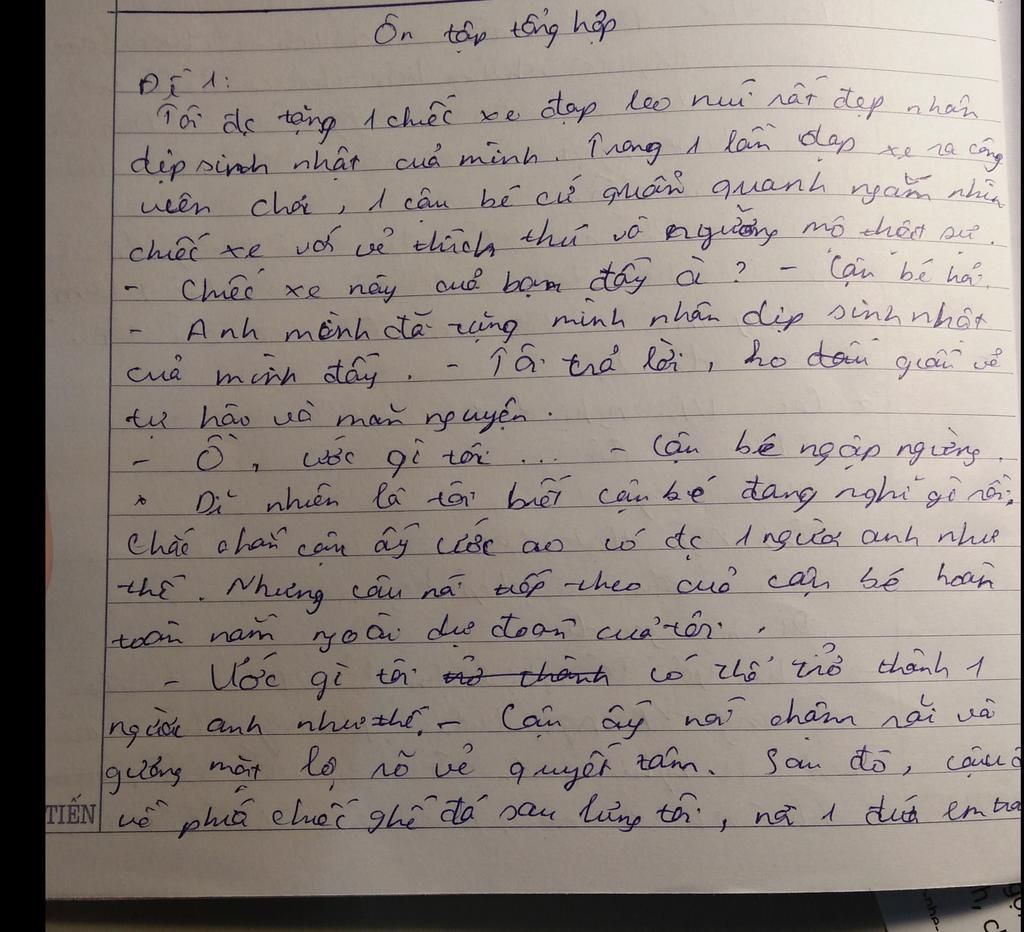 Ôn tập tổng hợp
Đề 1:
Tôi đc tặng 1 chiếc xe đạp leo núi rất đẹp nhân
dịp sinh nhật của mình. Trong 1 lần đạp xe ra công
viên chơi, 1 cậu bé cứ quẩn quanh ngắm nhìn
chiếc xe với vẻ thích thú và ngưỡng mộ thật sự.
- Chiếc xe này của bạn đấy à? - Cậu bé hỏi.
- Anh mình đã tặng mình nhân dịp sinh nhật
của mình đấy. - Tôi trả lời, ko giấu vẻ
tự hào và mãn nguyện.
- Ồ, ước gì tôi ... - Cậu bé ngập ngừng.
* Dĩ nhiên là tôi biết cậu bé đang nghĩ gì rồi.
Chắc chắn cậu ấy ước ao có đc 1 người anh như
thế. Nhưng câu nói tiếp theo của cậu bé hoàn
toàn nằm ngoài dự đoán của tôi.
- Ước gì tôi trở thành có thể trở thành 1
người anh như thế. - Cậu ấy nói chậm rãi và
gương mặt lộ rõ vẻ quyết tâm. Sau đó, cậu
TIẾN
về phía chiếc ghế đá sau lưng tôi, nơi 1 đứa em